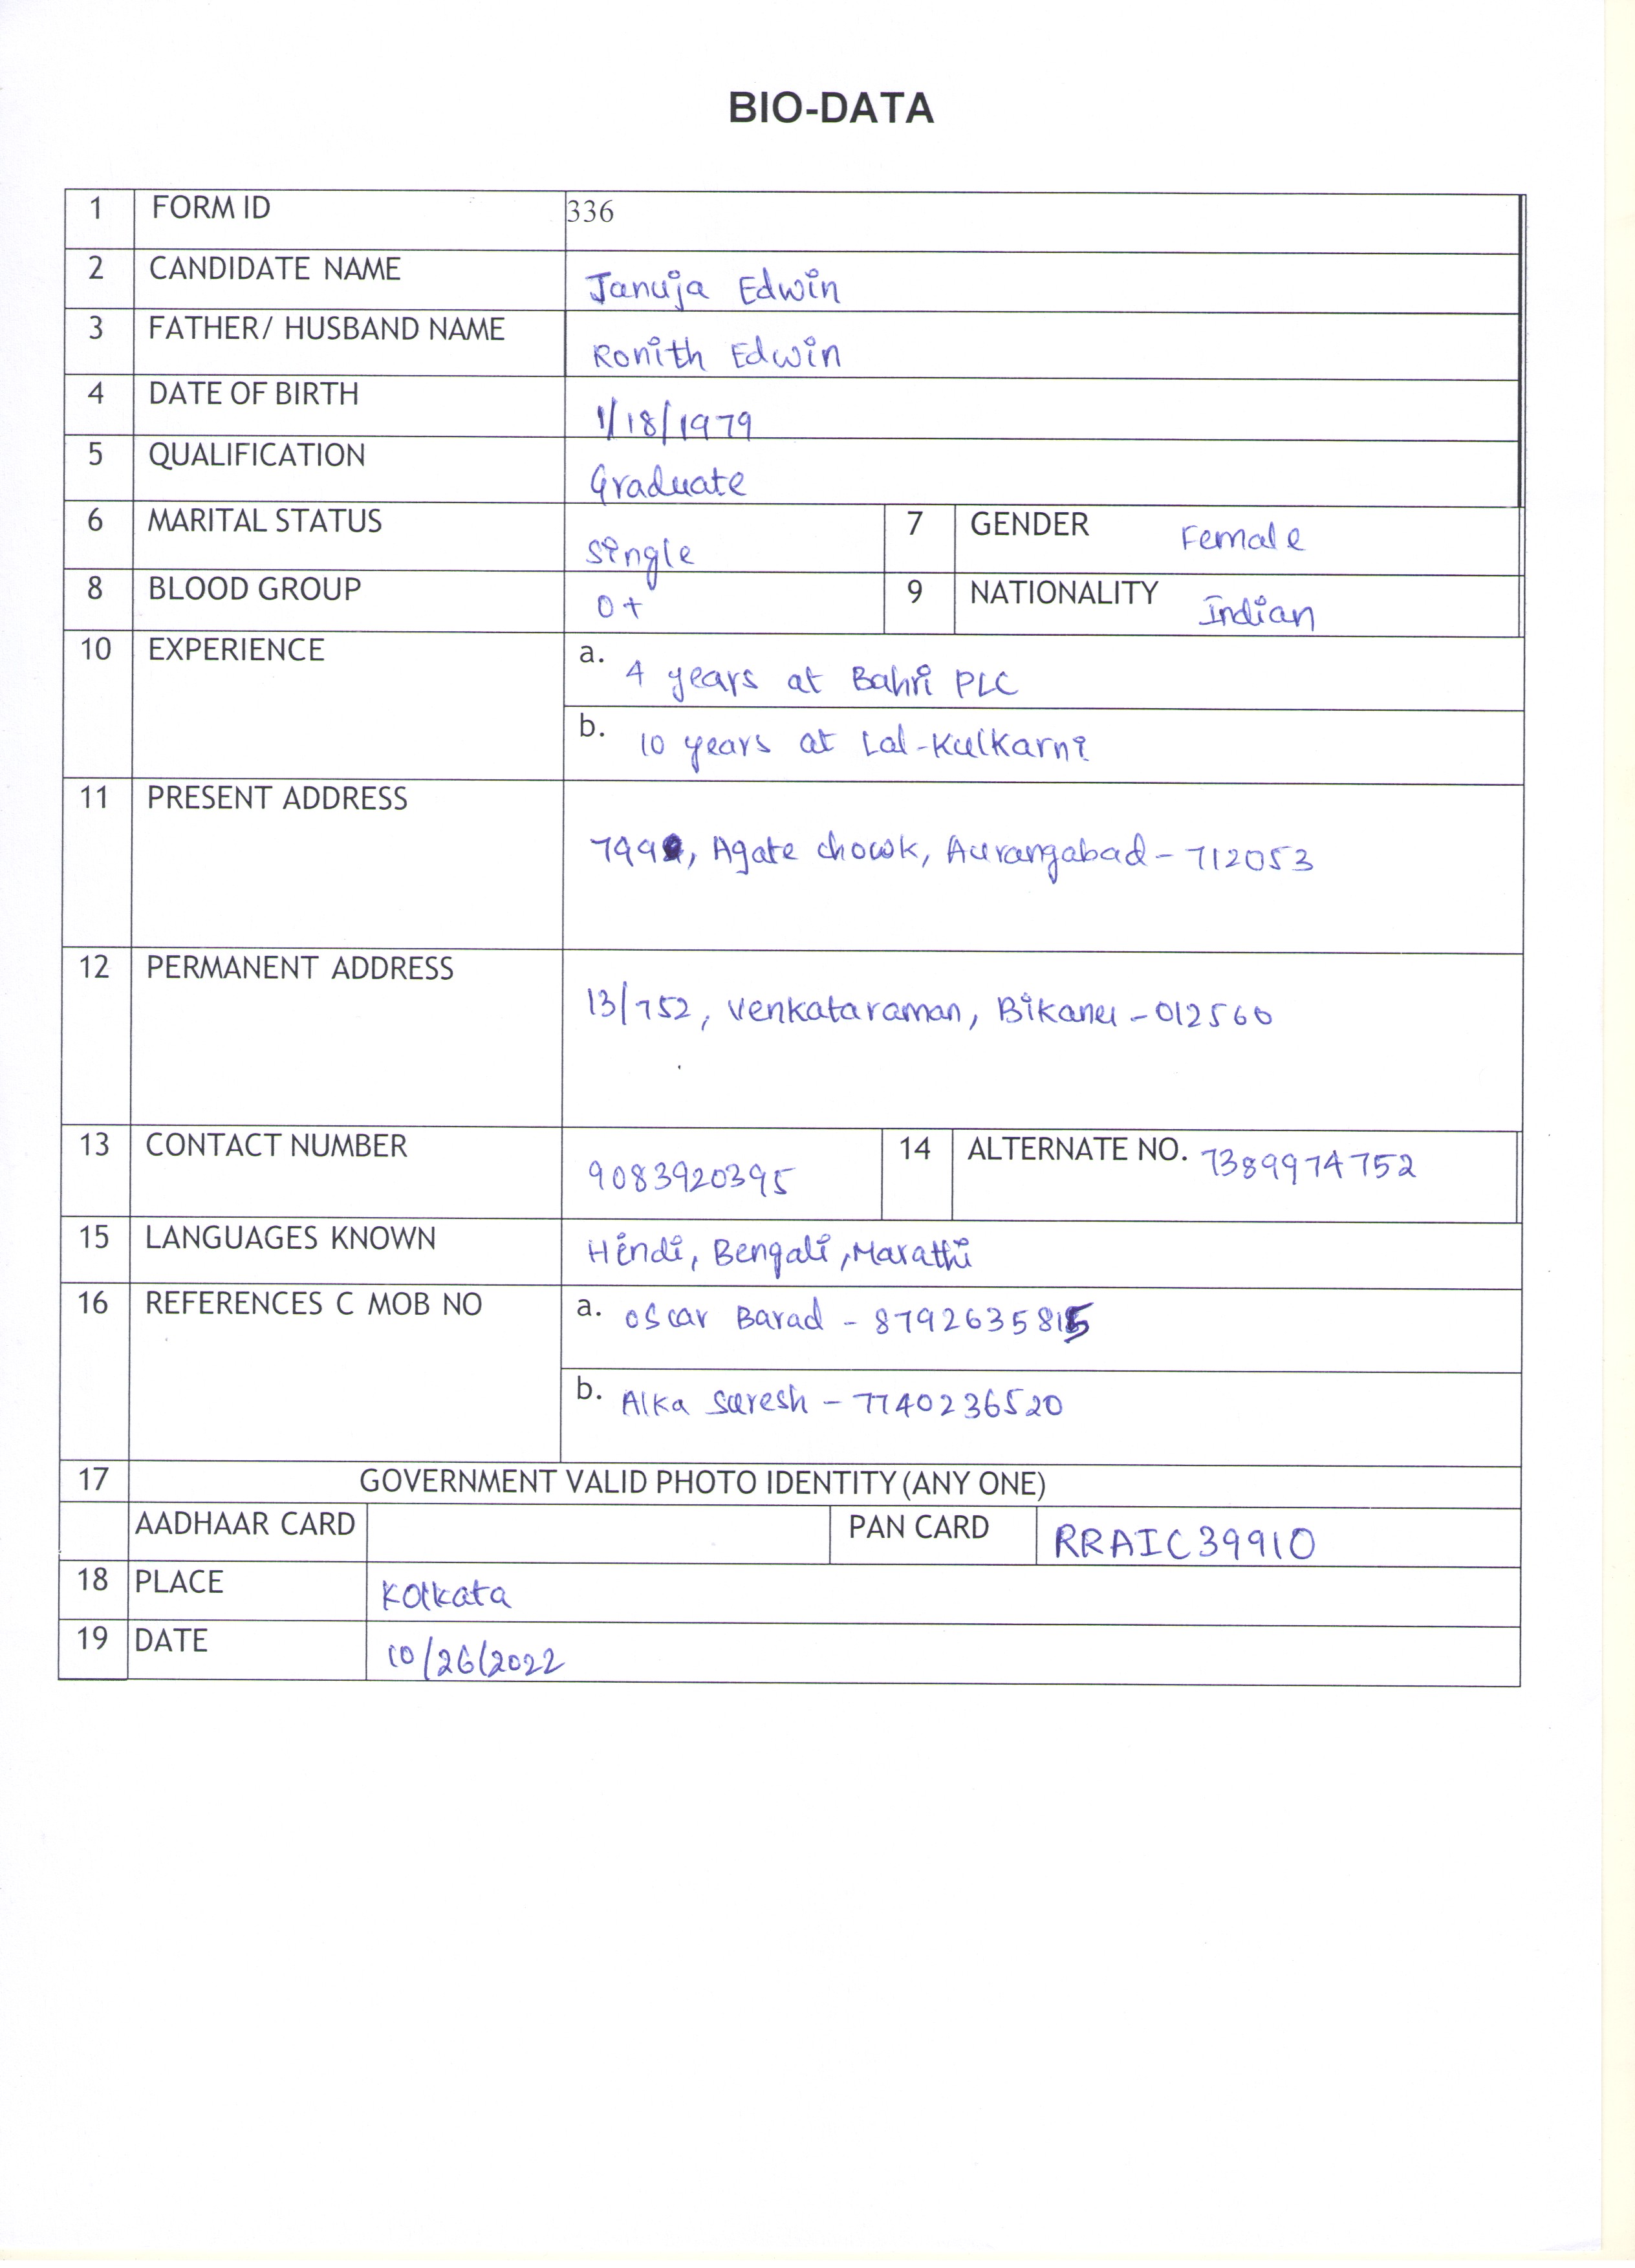 BIO-DATA
1 FORM ID 336
2 CANDIDATE NAME Januja Edwin
3 FATHER/ HUSBAND NAME Ronith Edwin
4 DATE OF BIRTH 1/18/1979
5 QUALIFICATION Graduate
6 MARITAL STATUS single 7 GENDER Female
8 BLOOD GROUP O+ 9 NATIONALITY Indian
10 EXPERIENCE a. 4 years at Bahri PLC
b. 10 years at Lal-Kulkarni
11 PRESENT ADDRESS
Agate chowk, Aurangabad - 712053
12 PERMANENT ADDRESS
13/752, Venkataraman, Bikaner - 012560
13 CONTACT NUMBER 9083920395 14 ALTERNATE NO. 7389974752
15 LANGUAGES KNOWN Hindi, Bengali, Marathi
16 REFERENCES C MOB NO a. Oscar Barad - 8792635815
b. Alka Suresh - 7740236520
17 GOVERNMENT VALID PHOTO IDENTITY (ANY ONE)
AADHAAR CARD PAN CARD RRAIC39910
18 PLACE Kolkata
19 DATE 10/26/2022